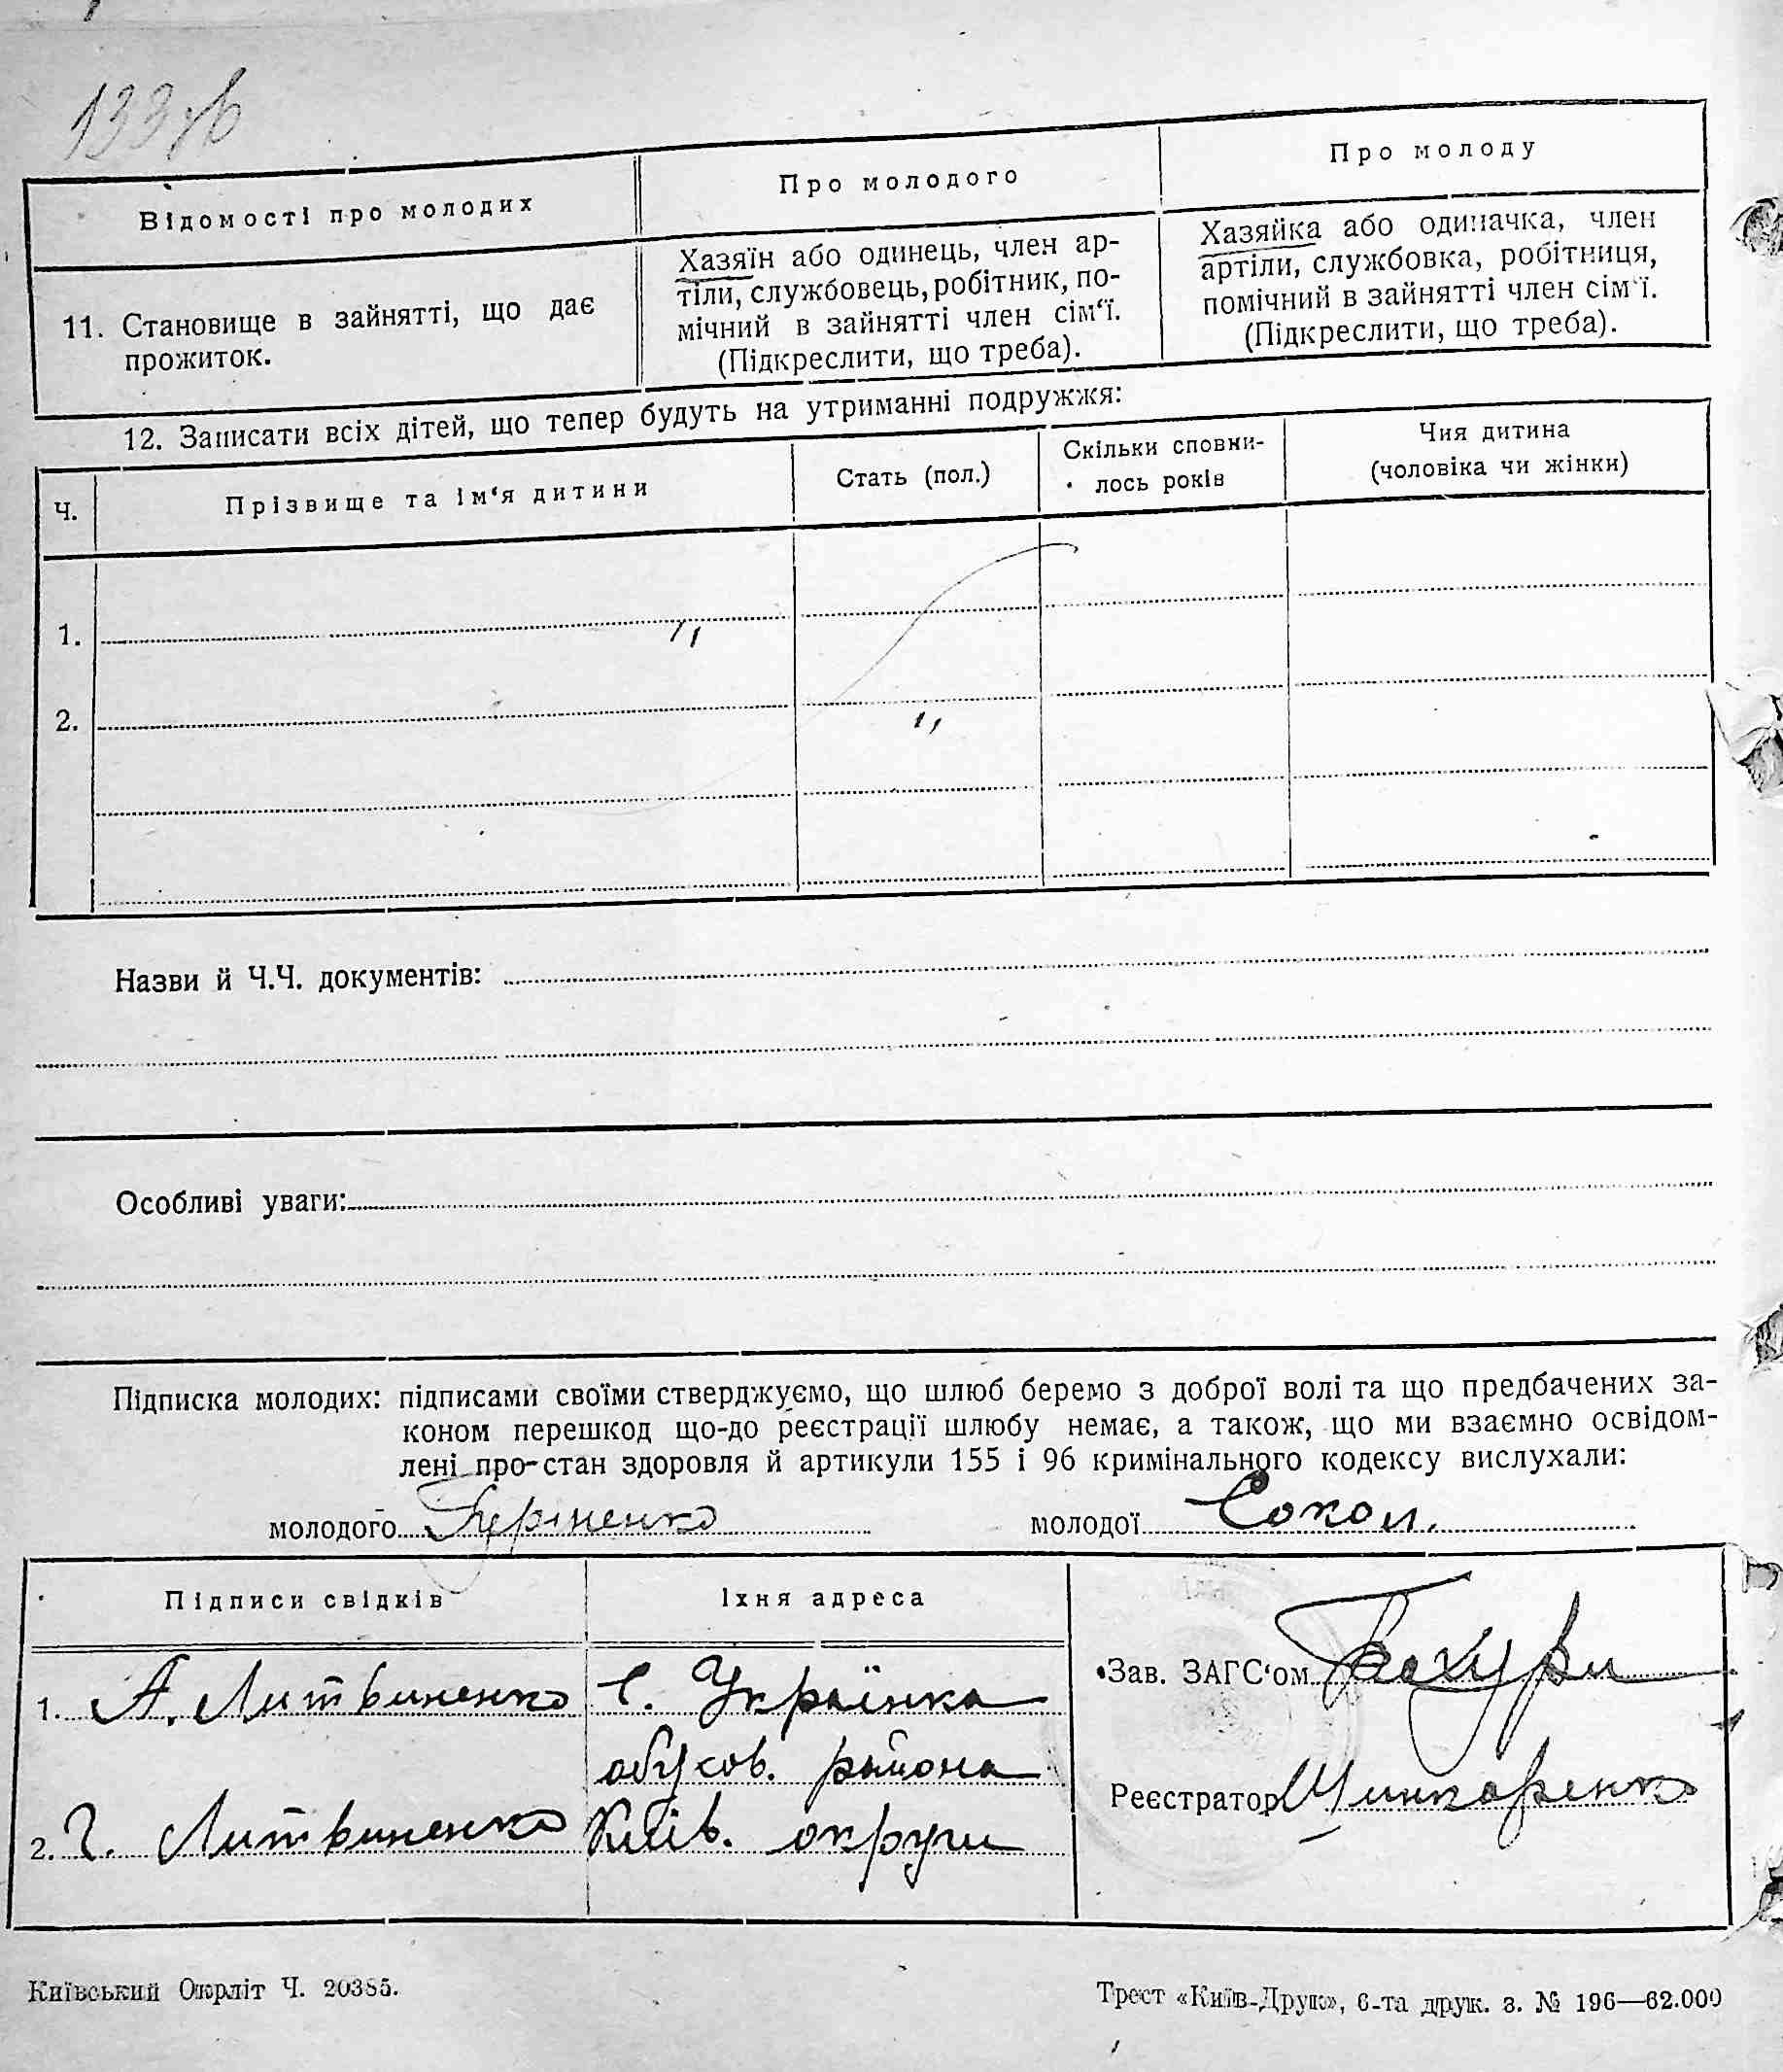 133
Відомості про молодих
Про молодого
Про молоду
11. Становище в зайнятті, що дає
прожиток.
Хазяїн або одинець, член ар-
тіли, службовець, робітник, по-
мічний в зайнятті член сім‘ї.
(Підкреслити, що треба).
Хазяйка або одиначка, член
артіли, службовка, робітниця,
помічний в зайнятті член сім‘ї.
(Підкреслити, що треба).
12. Записати всіх дітей, що тепер будуть на утриманні подружжя:
Ч.
Прізвище та ім‘я дитини
Стать (пол.)
Скільки сповни-
лось років
Чия дитина
(чоловіка чи жінки)
1.
"
2.
"
Назви й Ч.Ч. документів:
Особливі уваги:
Підписка молодих: підписами своїми стверджуємо, що шлюб беремо з доброї волі та що предбачених за-
коном перешкод що-до реєстрації шлюбу немає, а також, що ми взаємно освідом-
лені про стан здоровля й артикули 155 і 96 кримінального кодексу вислухали:
молодого
молодої Сокол.
Підписи свідків
Їхня адреса
1. А. Литвиненко
С. Українка
Зав. ЗАГС‘ом
обухов. района
Реєстратор Шинкаренко
2. Г. Литвиненко
Київ. округи
Київський Окрліт Ч. 20385.
Трест «Київ-Друк», 6-та друк. з. № 196—62.000